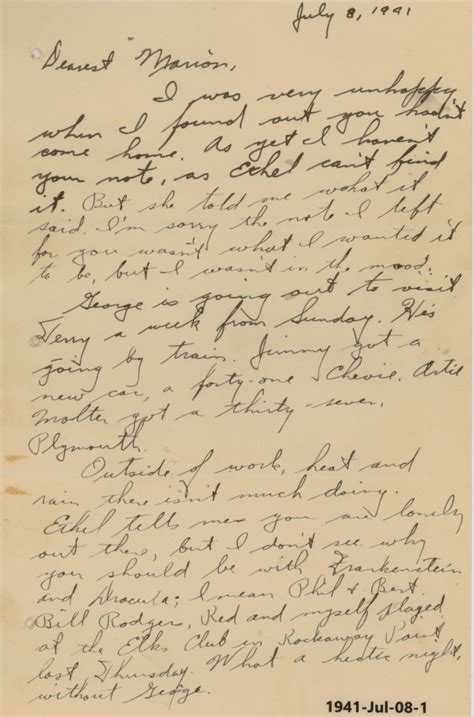 July 8, 1941
Dearest Marion,
I was very unhappy
when I found out you hadn't
come home. As yet I haven't
your note, as Ethel can't find
it. But she told me what it
said. I'm sorry the note I left
for you wasn't what I wanted it
to be, but I wasn't in the mood.
George is going out to visit
Jerry a week from Sunday. He's
going by train. Jimmy got a
new car, a forty-one Chevie. Artie
Molter got a thirty-seven,
Plymouth.
Outside of work, heat and
rain there isn't much doing.
Ethel tells me you are lonely
out there, but I don't see why
you should be with Frankenstein
and Dracula; I mean Phil & Bert.
Bill Rodger, Red and myself played
at the Elks Club in Rockaway Point
last Thursday. What a hectic night,
without George.
1941-Jul-08-1